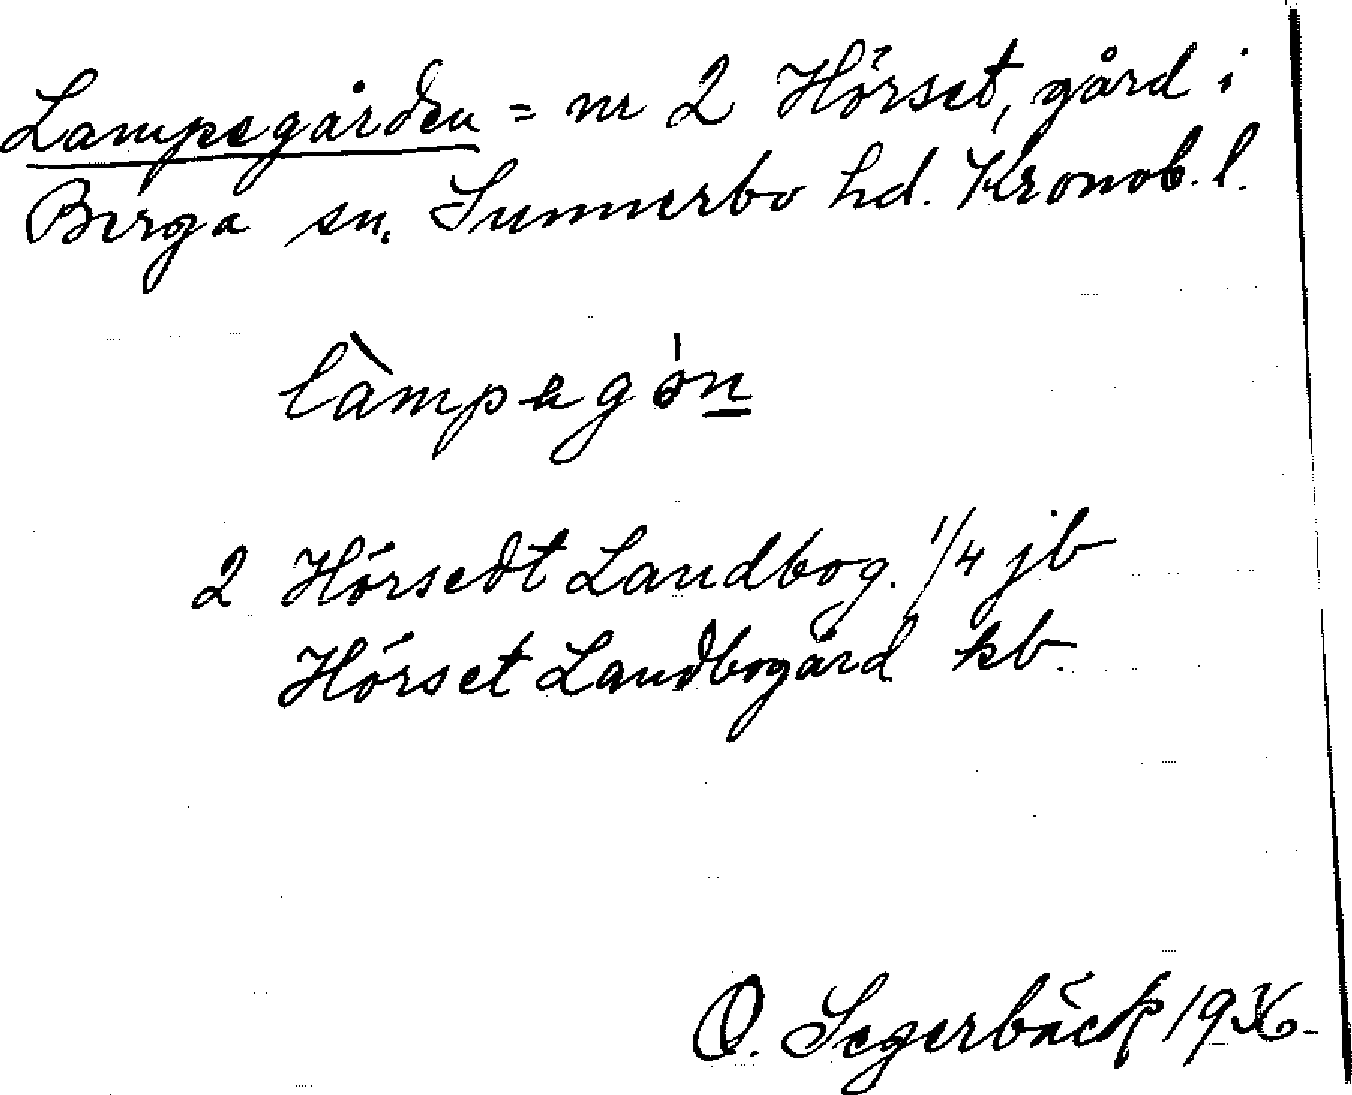 Lampegården = nr 2 Hörset, gård i
Berga sn. Sunnerbo hd. Kronob. l.
làmpagón
2 Hörsedt Landbog. 1/4 jb
Hörset Landbogård kb.
O. Segerbäck 1936.